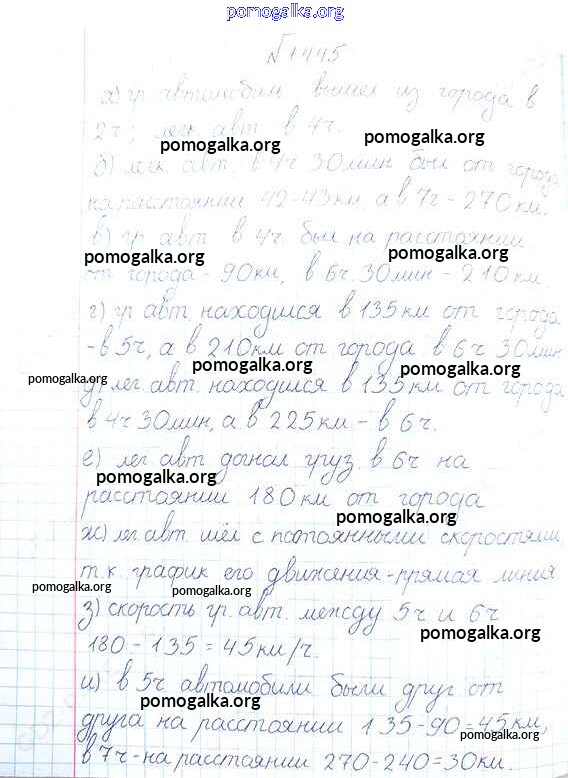 pomogalka.org
№1445
а) гр. автомобиль вышел из города в
2ч; легк. авт. в 4ч.
pomogalka.org
pomogalka.org
б) легк. авт. в 4ч 30мин был от города
на расстоянии 42-43км, а в 7ч - 270км.
в) гр. авт. в 4ч. был на расстоянии
pomogalka.org
pomogalka.org
от города - 90км, в 6ч. 30мин - 210км.
г) гр. авт. находился в 135км от города
- в 5ч, а в 210км от города в 6ч 30мин
pomogalka.org
pomogalka.org
pomogalka.org
д) лег. авт. находился в 135км от города
в 4ч 30мин, а в 225км - в 6ч.
е) лег. авт. догнал груз. в 6ч на
pomogalka.org
расстоянии 180км от города
pomogalka.org
ж) лег. авт. шёл с постоянными скоростями,
т.к. график его движения - прямая линия
pomogalka.org
pomogalka.org
з) скорость гр. авт. между 5ч и 6ч
pomogalka.org
180 - 135 = 45км/ч.
и) в 5ч автомобили были друг от
pomogalka.org
друга на расстоянии 135-90=45км,
pomogalka.org
в 7ч - на расстоянии 270-240=30км.